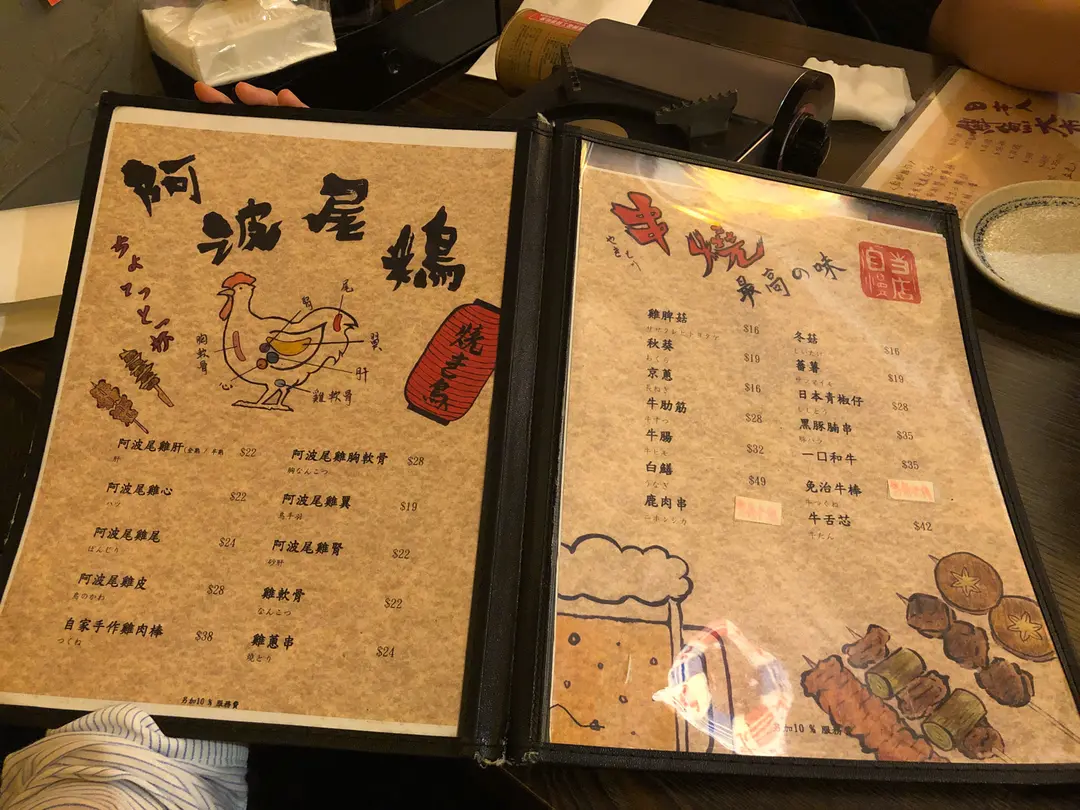 阿波尾鶏
ちょ
てっと一歩
焼き鳥
胸軟骨
腎
尾
翼
肝
心
雞軟骨
阿波尾雞肝(全熟 / 半熟 $22
肝
阿波尾雞心 $22
ハツ
阿波尾雞尾 $24
ぼんじり
阿波尾雞皮 $28
鳥のかわ
自家手作雞肉棒 $38
つくね
阿波尾雞胸軟骨 $28
胸なんこつ
阿波尾雞翼 $19
阿波尾雞腎 $22
砂肝
雞軟骨 $22
なんこつ
雞蔥串 $24
焼とり
另加10 % 服務費
串燒
やきもの
最高の味
当店自慢
雞脾菇 $16
秋葵 $19
おくら
京蔥 $16
長ねぎ
牛肋筋 $28
牛腸 $32
白鱔 $49
うなぎ
鹿肉串
冬菇 $16
しいたけ
蕃薯 $19
日本青椒仔 $28
ししとう
黑豚腩串 $35
豚バラ
一口和牛 $35
免治牛棒
牛舌芯 $42
牛たん
加10 % 服務費